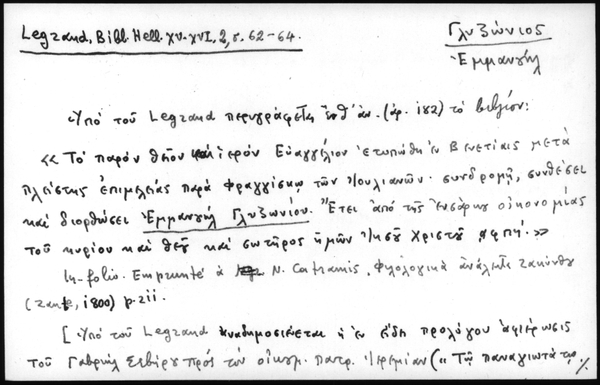 Legrand, Bibl. Hell. XV-XVI, 2, σ. 62-64.
Γλυζώνιος
Ἐμμανουήλ
Ὑπό τοῦ Legrand περιγράφεται ἐνθ' ἀν. (ἀρ. 182) τό βιβλίον:
« Τό παρόν θεῖον καί ἱερόν Εὐαγγέλιον ἐτυπώθη ἐν Βενετίαις μετά
πλείστης ἐπιμελείας παρά Φραγγίσκῳ τῶν Ἰουλιανῶν· συνδρομῇ, συνθέσει
καί διορθώσει Ἐμμανουήλ Γλυζωνίου. Ἔτει ἀπό τῆς ἐνσάρκου οἰκονομίας
τοῦ κυρίου καί θεοῦ καί σωτῆρος ἡμῶν Ἰησοῦ Χριστοῦ ͵αφπή. »
In-folio. Emprunté à N. Catramis, Φιλολογικά ἀνάλεκτα Ζακύνθου
(Zante, 1880) p. 211.
[Ὑπό τοῦ Legrand ἀναδημοσιεύεται ἡ ἐν εἴδει προλόγου ἀφιέρωσις
τοῦ Γαβριήλ Σεβήρου πρός τόν οἰκουμ. πατρ. Ἱερεμίαν (« Τῷ παναγιωτάτῳ ./.